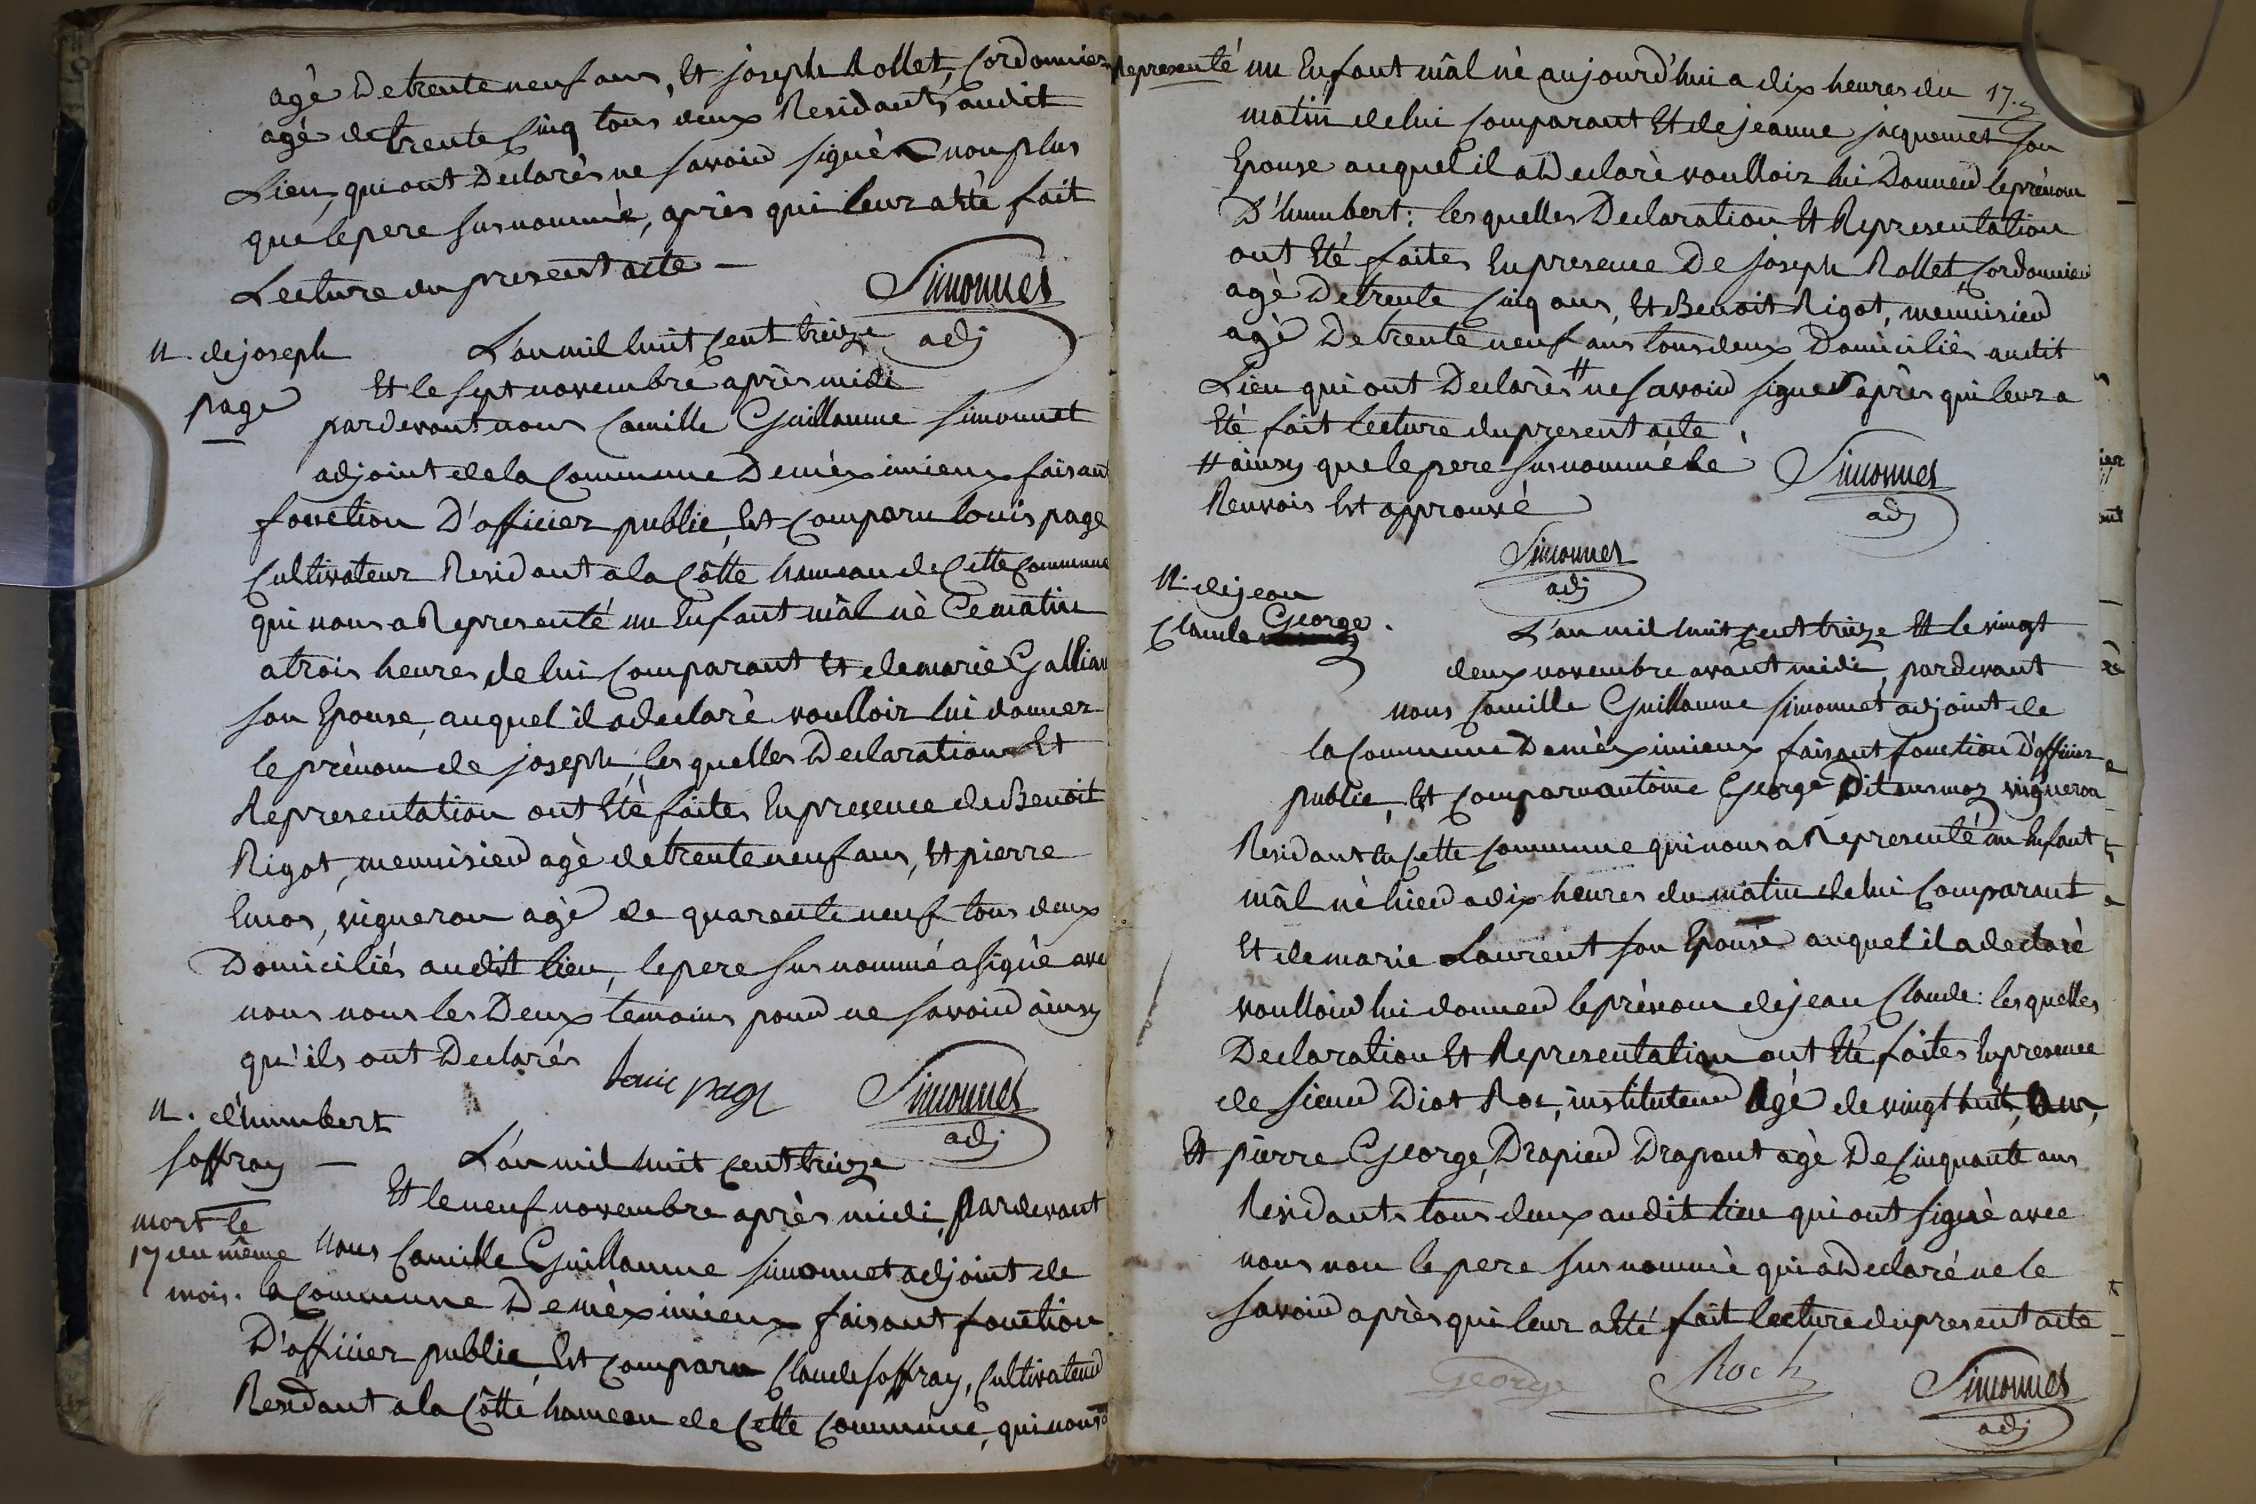 agé De trente neuf ans, Et joseph Rollet, Cordonnier
agé de trente Cinq tous deux Residants audit
Lieu, qui ont Declarés ne savoir signér non plus
que le pere susnommé, après qui leur a Eté fait
Lecture du present acte —
Simonnet
adj
N. de joseph
page
L'an mil huit Cent treize
Et le sept novembre après midi
pardevant nous Camille Guillaume Simonnet
adjoint de la Commune De méximieux faisant
fonction D'officier public, Est Comparu louis page
Cultivateur Residant a la Côtte hameau de Cette Commune
qui nous a Representé un Enfant mâl né Ce matin
a trois heures de lui Comparant Et de marie Gallian
son Epouse, auquel il a declaré voulloir lui donner
le prénom de joseph, lesquelles Declaration Et
Representation ont Eté faites En presence de Benoit
Rigot, menuisier agé de trente neuf ans, Et pierre
vigneron agé de quarente neuf tous deux
Domiciliés audit lieu, le pere susnommé a signé avec
nous non les Deux temoins pour ne savoir ainsy
qu'ils ont Declarés
Louis page
Simonnet
adj
N. d'humbert
soffray —
mort le
17 du même
mois.
L'an mil huit Cent treize
Et le neuf novembre après midi, pardevant
Nous Camille Guillaume simonnet adjoint de
la Commune De méximieux faisant fonction
D'officier public, Est Comparu Claude soffray, Cultivateur
Residant a la Côtte hameau de Cette Commune, qui nous a
Representé un Enfant mâl né aujourd'hui a dix heures du
17.
matin de lui Comparant Et de jeanne jacquemet son
Epouse auquel il a Declaré voulloir lui Donner le prénom
D'humbert: lesquelles Declaration Et Representation
ont Eté faites En presence De joseph Rollet, Cordonnier
agé De trente Cinq ans, Et Benoit Rigot, menuisier
agé De trente neuf ans tous deux Domiciliés audit
Lieu qui ont Declarés # ne savoir signer après qui leur a
Eté fait lecture du present acte
# ainsy que le pere susnommé Le
Renvois Est approuvé
Simonnet
adj
Simonnet
adj
N. de jean
Claude George.
L'an mil huit Cent treize Et le vingt
deux novembre avant midi, pardevant
nous Camille Guillaume simonnet adjoint de
la Commune De méximieux faisant fonction D'officier
public, Est Comparu antoine George Dit vigneron
Residant En Cette Commune qui nous a Representé un Enfant
mâl né hier a dix heures du matin de lui Comparant
Et de marie Laurent son Epouse auquel il a declaré
voulloir lui donner le prénom de jean Claude: lesquelles
Declaration Et Representation ont Eté faites En presence
de sieur Diot Roc, instituteur Agé de vingt huit, ans,
Et pierre George, Drapier Drapant agé De Cinquante ans
Residants tous deux audit lieu qui ont signé avec
nous non le pere susnommé qui a Declaré ne le
savoir après qui leur a Eté fait lecture du present acte
George
Roch
Simonnet
adj